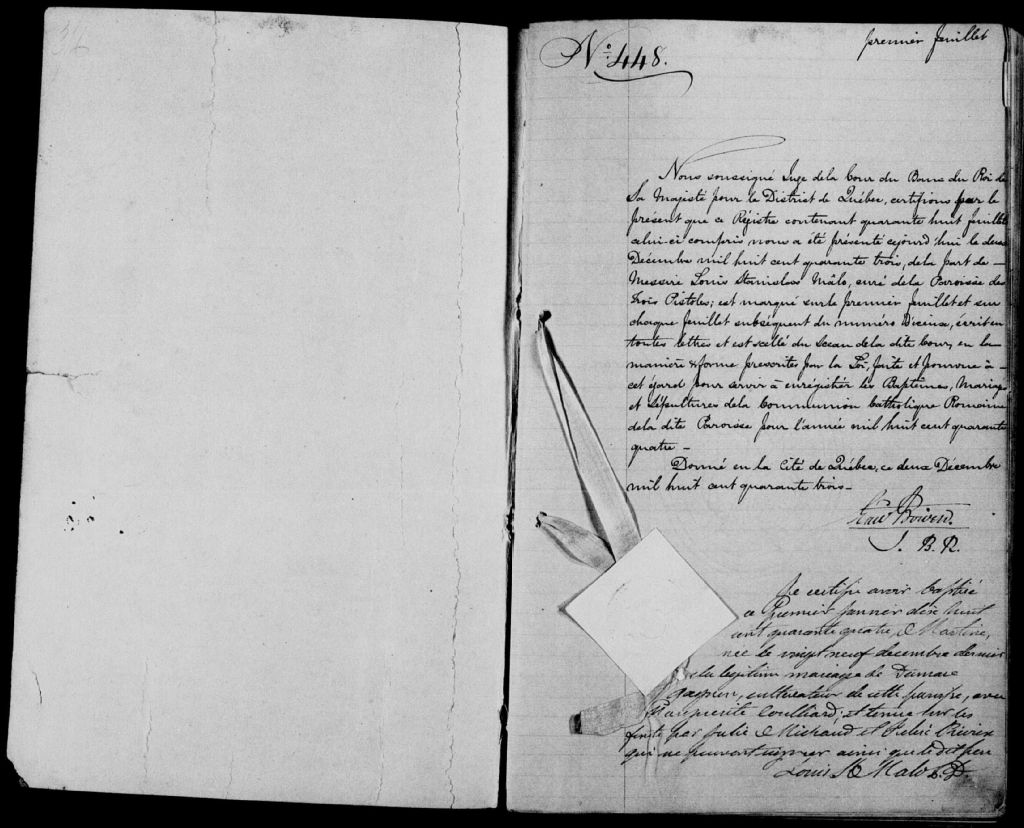 premier feuillet
No. 448.
Nous soussigné Juge de la Cour du Banc du Roi de
Sa Majesté pour le District de Québec, certifions par le
présent que ce Régistre contenant quarante huit feuillets
celui-ci compris nous a été présenté cejourd'hui le deux
Décembre mil huit cent quarante trois, de la part de —
Messire Louis Stanislas Mâlo, curé de la Paroisse des
Trois Pistoles; est marqué sur le premier feuillet et sur
chaque feuillet subséquent du numéro Dicina, écrit en
toutes lettres et est scellé du Sceau de la dite Cour, en la
manière & forme prescrites par la Loi, faite et pourvue à —
cet égard pour servir à enrégistrer les Baptêmes, Mariages
et Sépultures de la Communion Catholique Romaine
de la dite Paroisse pour l'année mil huit cent quarante
quatre —
Donné en la Cité de Québec, ce deux Décembre
mil huit cent quarante trois —
Edw Bowen.
J. B. R.
Je certifie avoir baptisé
ce Premier Janvier dixe huit
cent quarante quatre, Martine,
née le vingt neuf decembre dernier
du legitime mariage de Damase
Gagnon, cultivateur de cette paroisse, avec
Marguerite Couillard; et tenue sur les
fonts par Julie Michaud et
qui ne peuvent signer ainsi que le dit père
Louis S. Malo